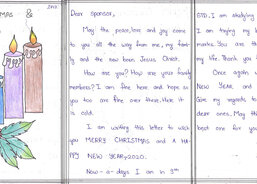 MAS &
2nd
Dear Sponsor,
May the peace, love and joy come
to you all the way from me, my fami-
ly and the new born Jesus Christ.
How are you? How are your family
members? I am fine here and hope so
you too are fine over there. Here it
is cold.
I am writing this letter to wish
you MERRY CHRISTMAS and A HA-
PPY NEW YEAR, 2020.
Now-a-days I am in 3rd
STD, I am studying
I am trying my b
marks. You are th
my life. Thank you
Once again
NEW YEAR, and
Give my regards to
dear ones. May this
best one for you